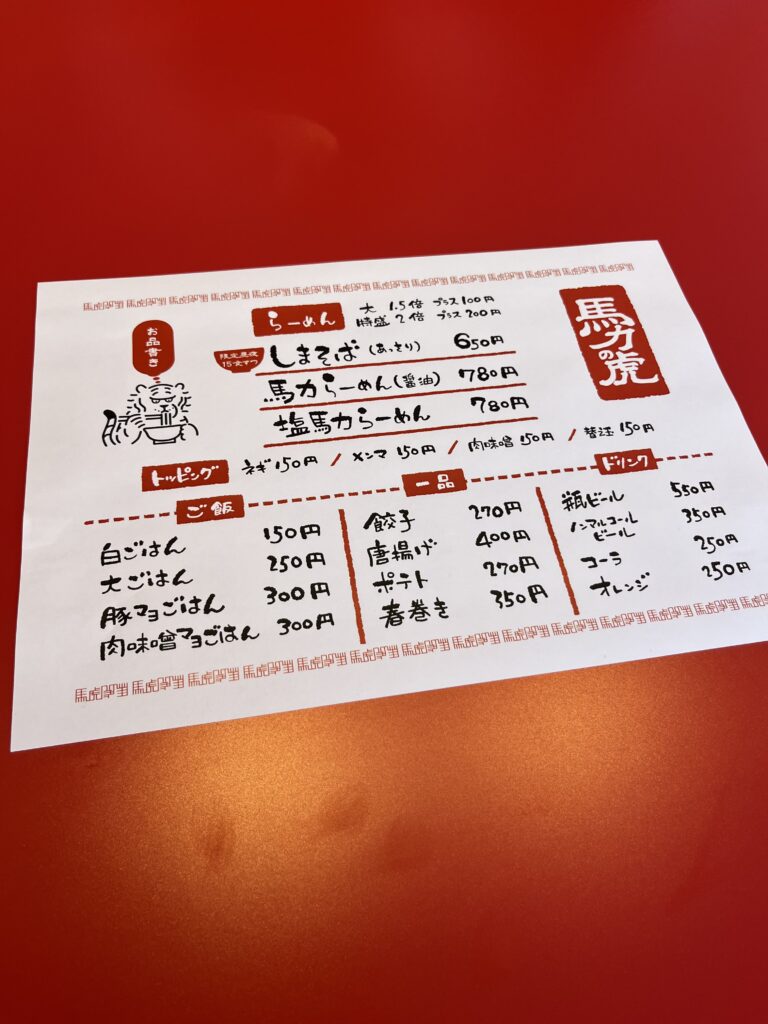 お品書き
らーめん
大 1.5倍 プラス100円
特盛 2倍 プラス200円
馬力の虎
限定昼夜
15食ずつ
しまそば(あっさり) 650円
馬力らーめん(醤油) 780円
塩馬力らーめん 780円
トッピング ネギ 150円 / メンマ 150円 / 肉味噌 150円 / 替玉 150円
ご飯
白ごはん 150円
大ごはん 250円
豚マヨごはん 300円
肉味噌マヨごはん 300円
一品
餃子 270円
唐揚げ 400円
ポテト 270円
春巻き 350円
ドリンク
瓶ビール 550円
ノンアルコール
ビール 350円
コーラ 250円
オレンジ 250円